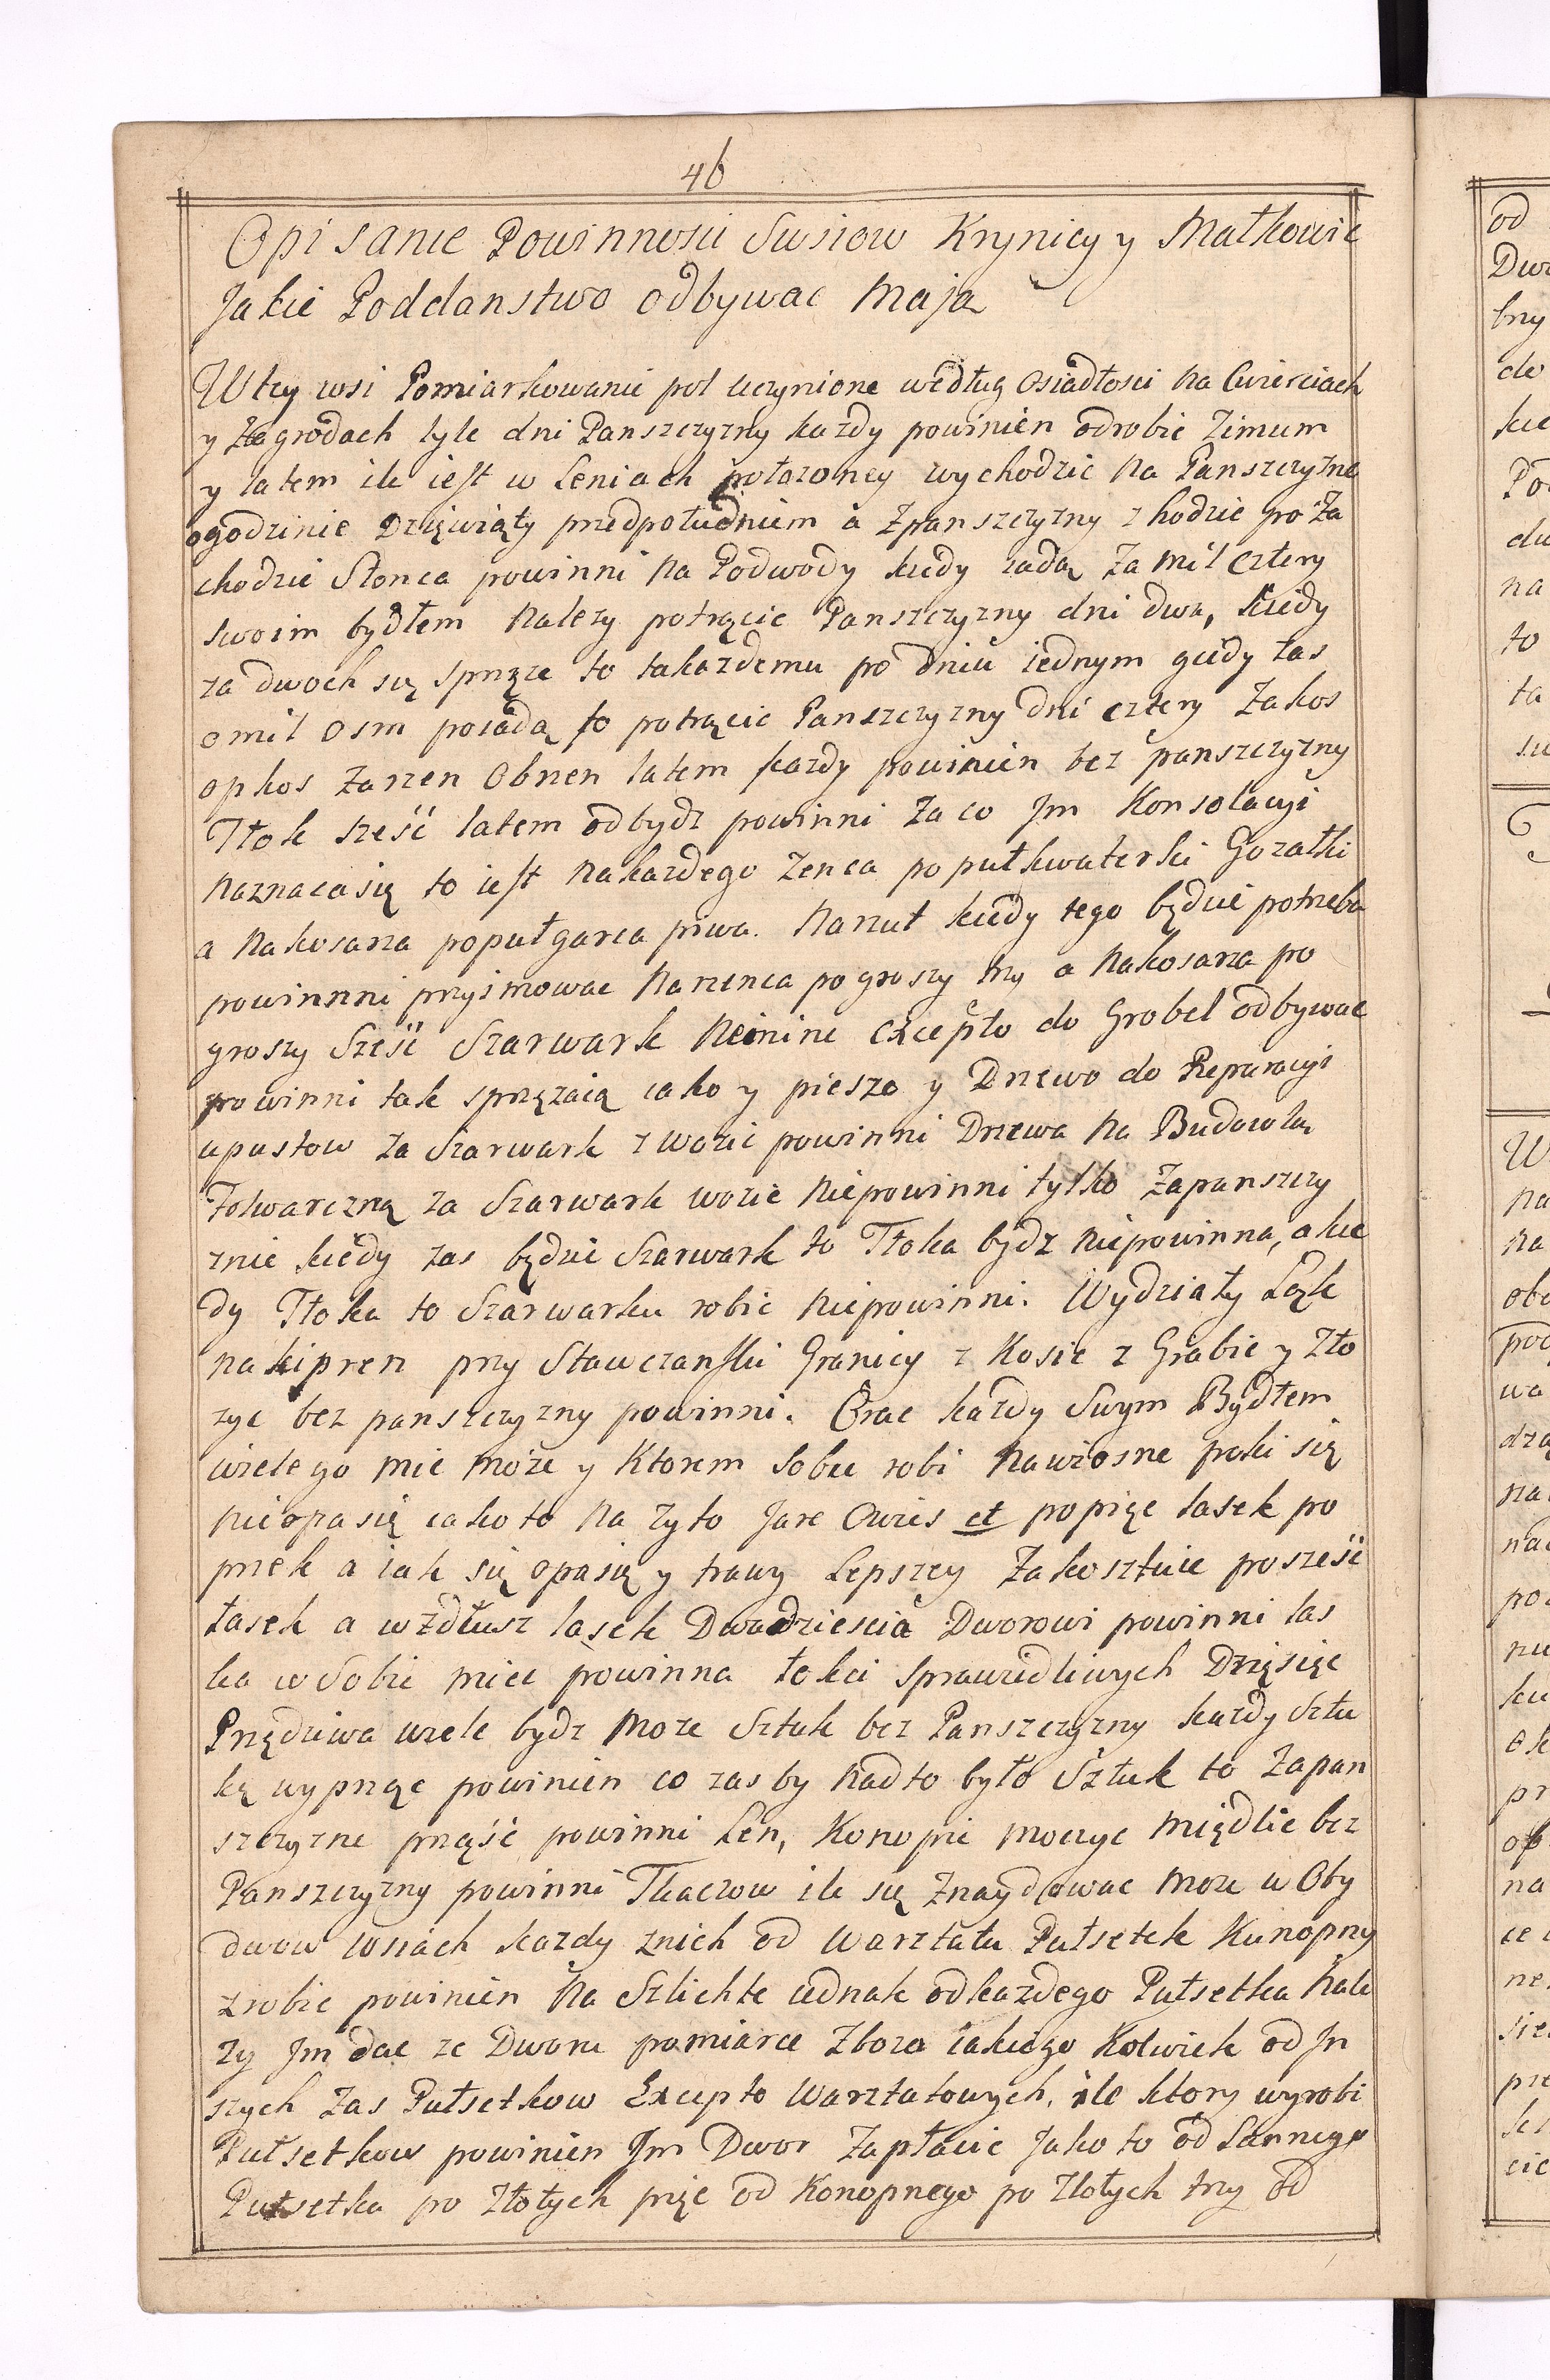 46
Opisanie Powinnosci Swsiow Krynicy y Małkowic
Jakie Poddanstwo odbywac Maja
W tey wsi Pomiarkowanie pol uczynione według Osiadłosci na Cwierciach
y Zagrodach tyle dni Panszczyzny kazdy powinien odrobic Zimum
y latem ile iest w Leniach połozoney wychodzic na Panszczyzne
ogodzinie Dzięwiąty przedpołudniem a Zpanszczyzny zhodzic po Za
chodzie Słonca powinni na Podwody kiedy iadą Za mil cztery
swoim bydłem nalezy potrącic Panszczyzny dni dwa, kiedy
za dwoch się sprzęze to takazdemu po dniu iednym giedy tas
o mil osm poiadą to potrącic Panszczyzny dni cztery Zakos
opkos Zarzen Obrzen latem kazdy powinien bez panszczyzny
Tłok sześć latem odbydz powinni Za co Jm Konsolacyi
naznaca się to iest na kazdego Zenca po pułkwaterki Gozałki
a na kosarza popułgarca piwa. Narzut kiedy tego będzie potrzeba
powinnni przyimowac na rzenca po groszy trzy a na kosarza po
groszy Sześć Szarwark Neinine Excepto do Grobel odbywac
powinni tak sprzęzaią iako y pieszo y Drzewo do Reparacyi
upustow za Szarwark zwozic powinni Drzewa na Budowlą
Folwarczną za Szarwark wozic niepowinni tylko Zapanszczy
znie kiedy zas będzie Szarwark to Tłoka bydz niepowinna, a kie
dy Tłoka to Szarwarku robic niepowinni. Wydziały Łąk
na kipren przy Stawczanski Granicy z Kosic z Grabic y Zło
zyc bez panszczyzny powinni. Orac kazdy Swym Bydłem
wiele go miec może y Ktorem Sobie robi nawiosne poki się
nieopasię iako to na zyto Jare Owies et popięc łasek po
przek a iak się opasię y trawy Lepszey Zakosztuie posześć
łasek a wzdłusz łasek Dwadziescia Dworowi powinni łas
ka w Sobie miec powinna łokci sprawiedliwych Dzięsięc
Przędziwa wiele bydz Moze Sztuk bez Panszczyzny kazdy Sztu
kę wyprzęc powinien co zas by nadto było Sztuk to Zapan
szczyzne prząść powinni Len, Konopie moczyc międlic bez
Panszczyzny powinni Tkaczow ile się Znaydowac moze w Oby
dwow wsiach kazdy znich od Warztatu Pułsetek Kunopny
zrobic powinien na Szlichte iednak od kazdego Pułsetka nale
zy Jm dac ze Dworu pomiarce Zboza iakiego Kolwiek od Jn
szych Zas Pułsetkow Excepto Warztatowych, ile ktory wyrobi
Pułsetkow powinien Jm Dwor Zapłacic Jako to od Lannego
Pułsetka po Złotych pięc od Konopnego po Złotych trzy od